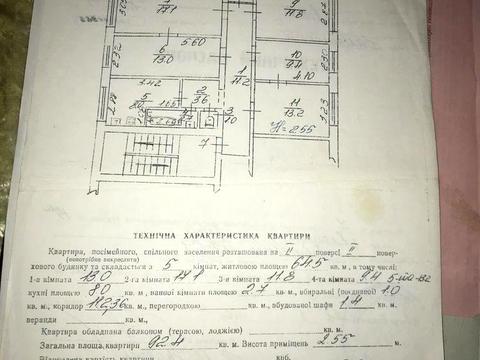 3.05
7
17.1
9
11.8
5.60
6
13.0
2.32
10
9.4
2.30
4.10
1
11.2
3.42
5
8.0
2
3.6
3
1.0
11
13.2
2.23
H=2.55
7
ТЕХНІЧНА ХАРАКТЕРИСТИКА КВАРТИРИ
Квартира, посімейного, спільного заселення розташована на II поверсі II повер-
(непотрібне викреслити)
хового будинку та складається з 5 кімнат, житловою площею 64.5 кв. м., в тому числі:
1-а кімната 13.0 2-га кімната 17.1 кв. м., 3-я кімната 11.8 4-та кімната 9.4 5-та 13.2
кухні площею 8.0 кв. м., ванної кімнати площею 2.7 кв. м., вбиральні 1.0
кв. м., коридор кв. м., перегородкою кв. м., вбудованої шафи 1.4 кв. м.
веранди кв. м.
Квартира обладнана балконом (терасою, лоджією) кв. м.
Загальна площа квартири 92.4 кв. м. Висота приміщень 2.55